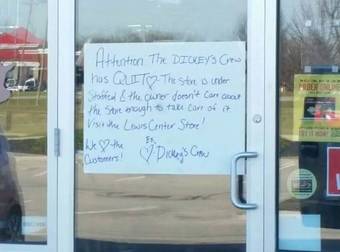 Attention The DICKEY'S Crew
has QUIT♡ The store is under
Staffed & the owner doesn't care about
the store enough to take care of it
Visit the Lewis Center Store!
We ♡ the
Customers!
Ex.
♡ Dickey's Crew
ORDER ONLINE